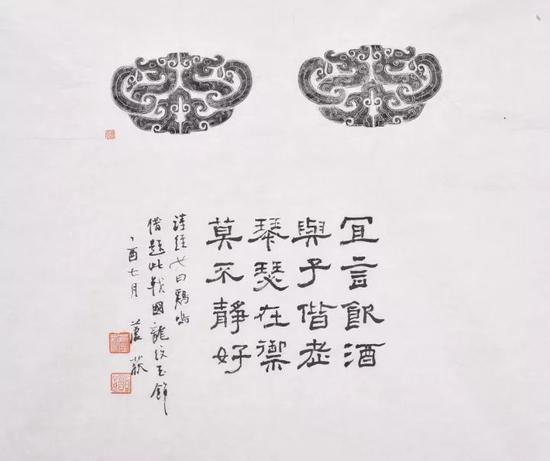 宜言飲酒
與子偕老
琴瑟在禦
莫不靜好
詩經女曰鷄鳴
借題此戰國龍紋玉飾
丁酉七月